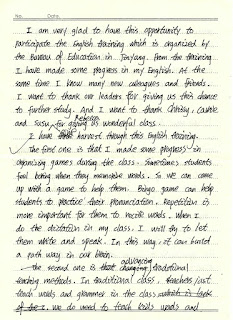 No.          Date.
I am very glad to have this opportunity to
participate the English training which is organized by
the Bureau of Education in Jinyang. From the training
I have made some progress in my English. At the
same time I know many new colleagues and friends.
I want to thank our leaders for giving us this chance
to further study. And I want to thank Chrissy, Carrie
Rebecca
and Susu, for giving us wonderful class.
I have harvest through this English training.
The first one is that I made some progress in
organizing games during the class. Sometimes students
feel boring when they memorize words. So we can come
up with a game to help them. Bingo game can help
students to practice their pronunciation. Repetition is
more important for them to recite words. When I
do the dictation in my class. I will try to let
them write and speak. In this way, it can build
a path way in our brain.
advancing
the second one is that changing traditional
teaching methods. In traditional class, teachers just
teach words and grammar in the class which is lack
of we do need to teach kids words and